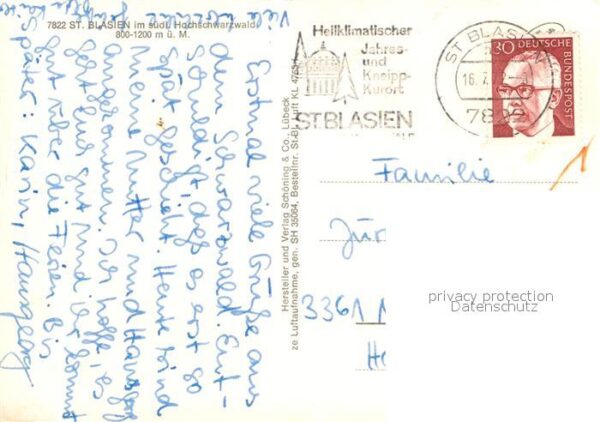 7822 ST. BLASIEN im südl. Hochschwarzwald
800-1200 m ü. M.
Heilklimatischer
Jahres-
und
Kneipp-
Kurort
ST. BLASIEN
ST BLASIEN
16.7.
7822
30 DEUTSCHE
BUNDESPOST
Hersteller und Verlag Schöning & Co., Lübeck
ze Luftaufnahme, gen. SH 35084, Bestell-Nr. St. Bl. Luft KL 4765
Erstmal viele Grüße aus
dem Schwarzwald. Ent-
schuldigt, daß es erst so
spät geschieht. Heute sind
meine Mutter und Hansgeorg
angekommen. Ich hoffe, es
geht Euch gut und Ihr kommt
gut über die Ferien. Bis
später: Karin, Hansgeorg
Familie
Jür
3361
He
privacy protection
Datenschutz